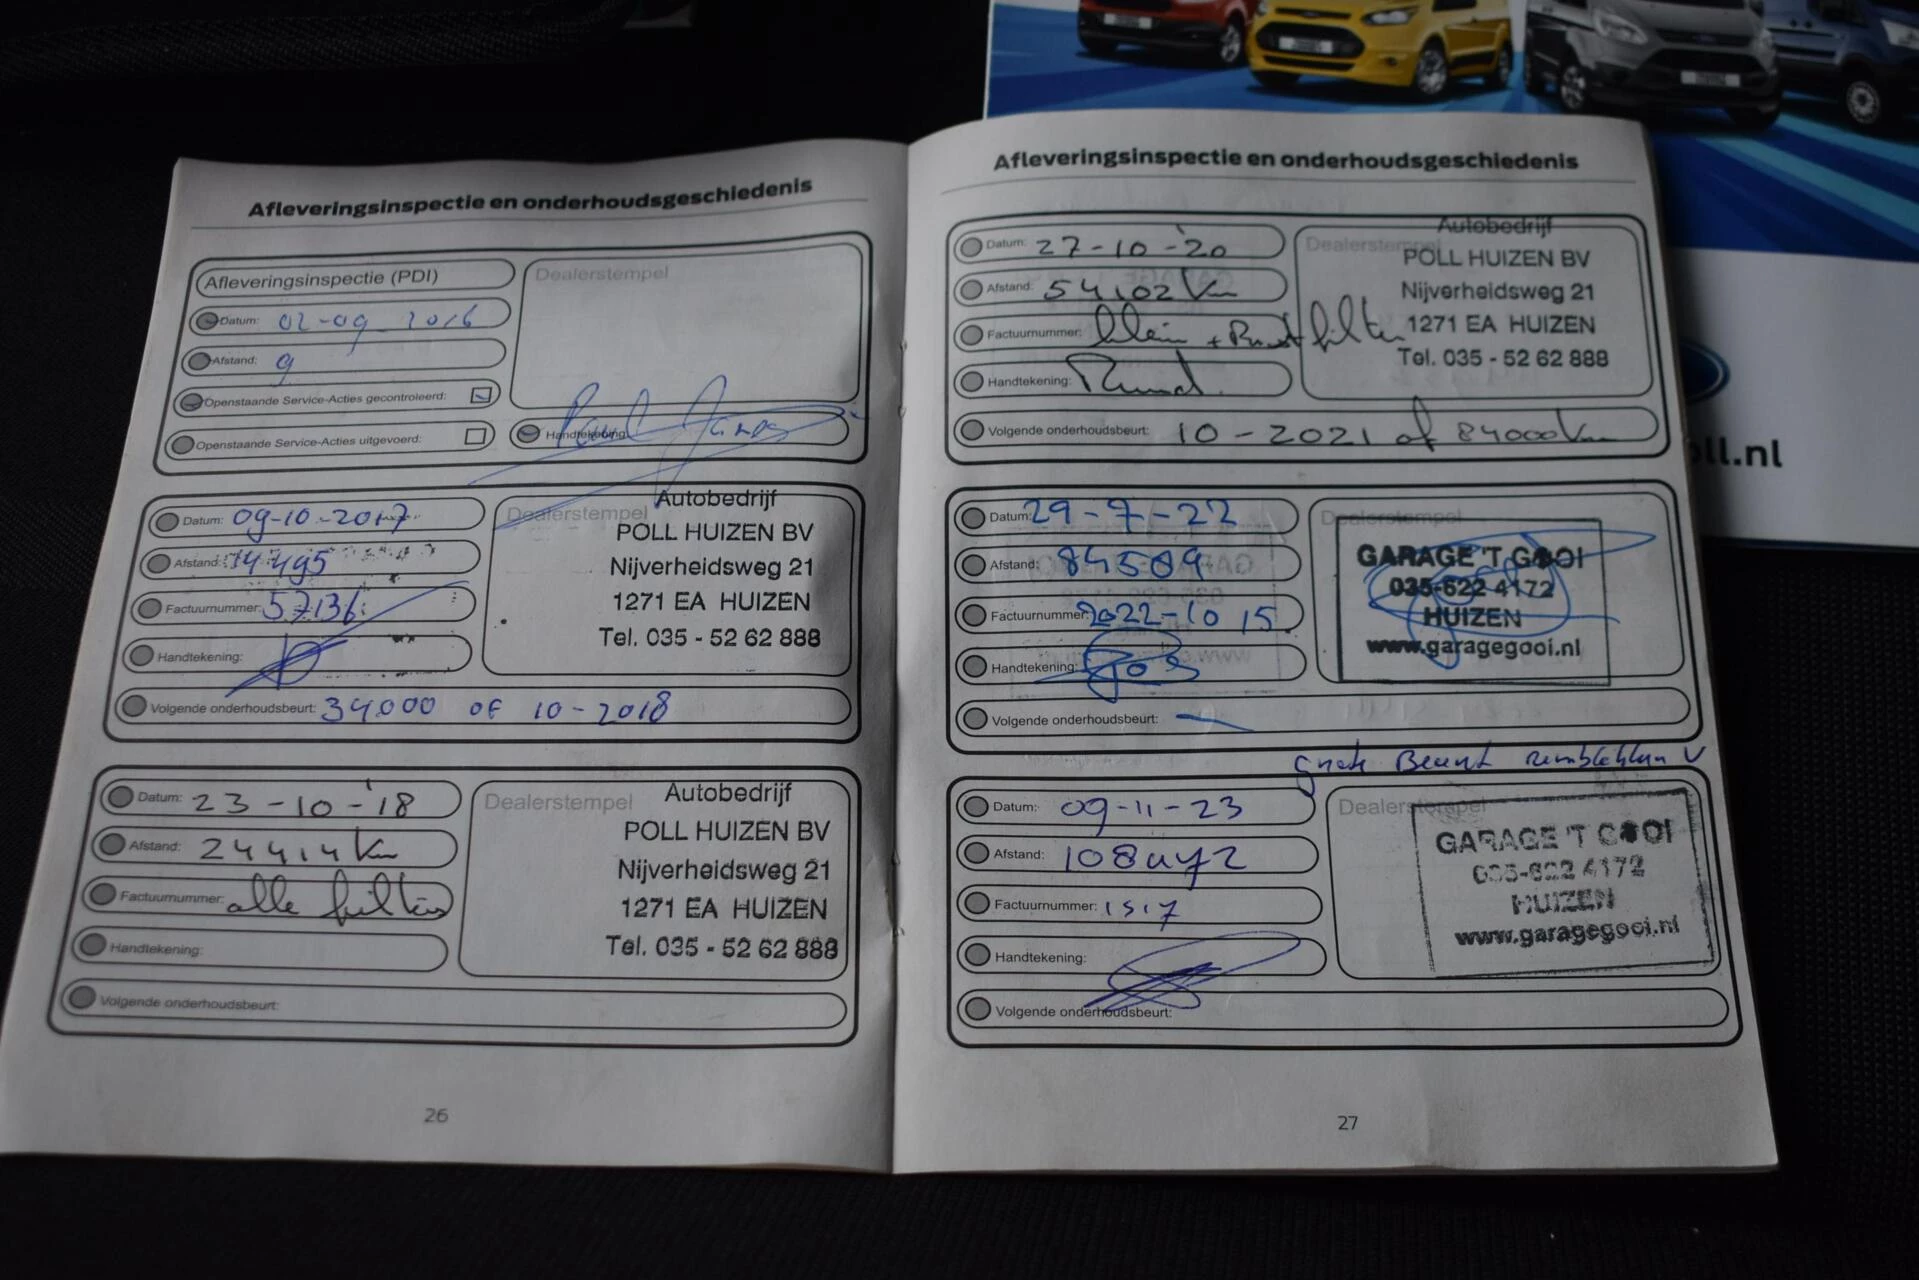 Afleveringsinspectie en onderhoudsgeschiedenis
Afleveringsinspectie (PDI)
Dealerstempel
Datum: 02-09-2016
Afstand: 9
Openstaande Service-Acties gecontroleerd:
Openstaande Service-Acties uitgevoerd:
Handtekening:
Datum: 09-10-2017
Afstand: 14495
Factuurnummer: 57136
Handtekening:
Volgende onderhoudsbeurt: 34000 OF 10-2018
Dealerstempel
Autobedrijf
POLL HUIZEN BV
Nijverheidsweg 21
1271 EA HUIZEN
Tel. 035 - 52 62 888
Datum: 23-10-'18
Afstand: 24414 km
Factuurnummer: alle filters
Handtekening:
Volgende onderhoudsbeurt:
Dealerstempel
Autobedrijf
POLL HUIZEN BV
Nijverheidsweg 21
1271 EA HUIZEN
Tel. 035 - 52 62 888
26
Afleveringsinspectie en onderhoudsgeschiedenis
Datum: 27-10-'20
Afstand: 54102 km
Factuurnummer: klein + filter
Handtekening:
Volgende onderhoudsbeurt: 10-2021 of 84000 km
Dealerstempel
Autobedrijf
POLL HUIZEN BV
Nijverheidsweg 21
1271 EA HUIZEN
Tel. 035 - 52 62 888
Datum: 29-7-22
Afstand: 84509
Factuurnummer: 2022-1015
Handtekening:
Volgende onderhoudsbeurt: —
Dealerstempel
GARAGE 'T GOOI
035-622 4172
HUIZEN
www.garagegooi.nl
Grote Beurt
Datum: 09-11-23
Afstand:
Factuurnummer: 1517
Handtekening:
Volgende onderhoudsbeurt:
Dealerstempel
GARAGE 'T GOOI
035-622 4172
HUIZEN
www.garagegooi.nl
27
oll.nl